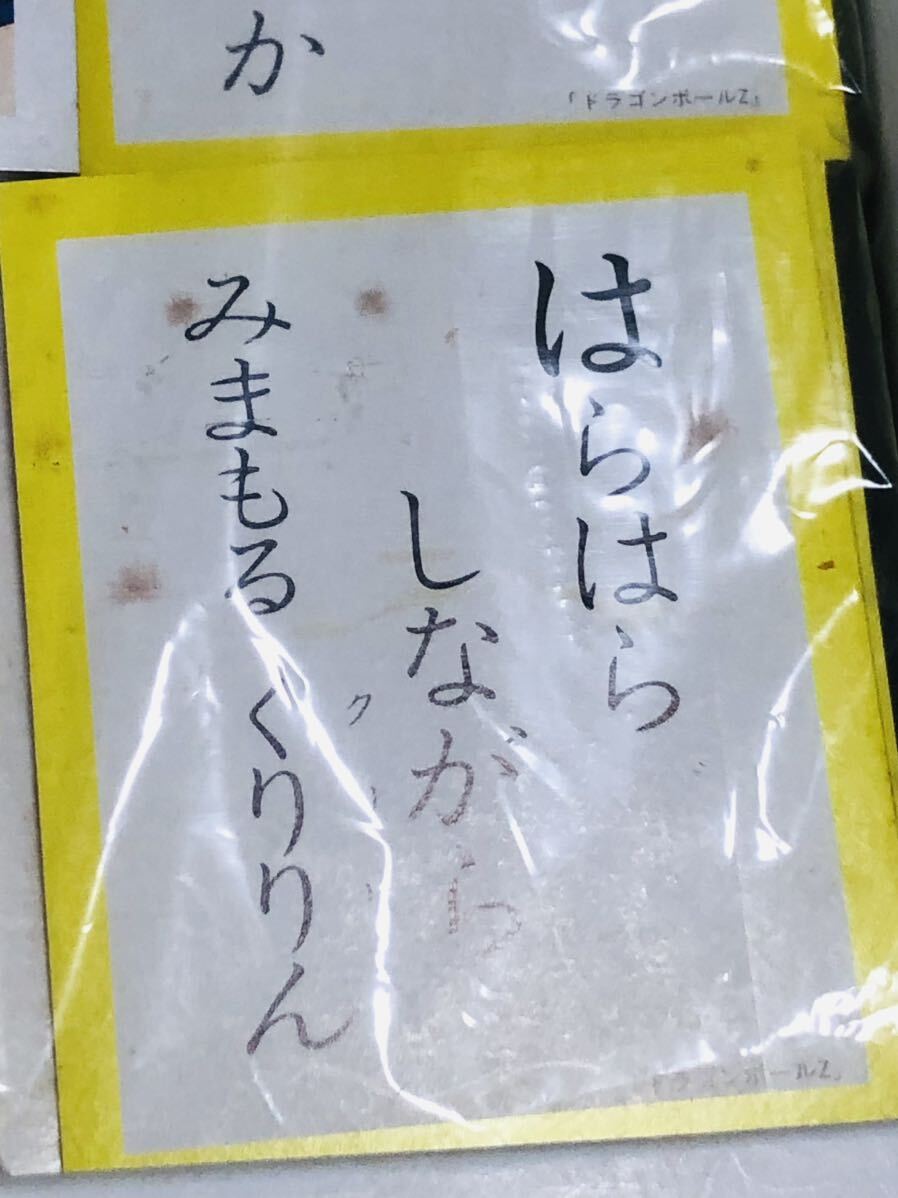 か
「ドラゴンボールZ」
はらはら
しながら
みまもる くりりん
ク
ドラゴンボールZ」